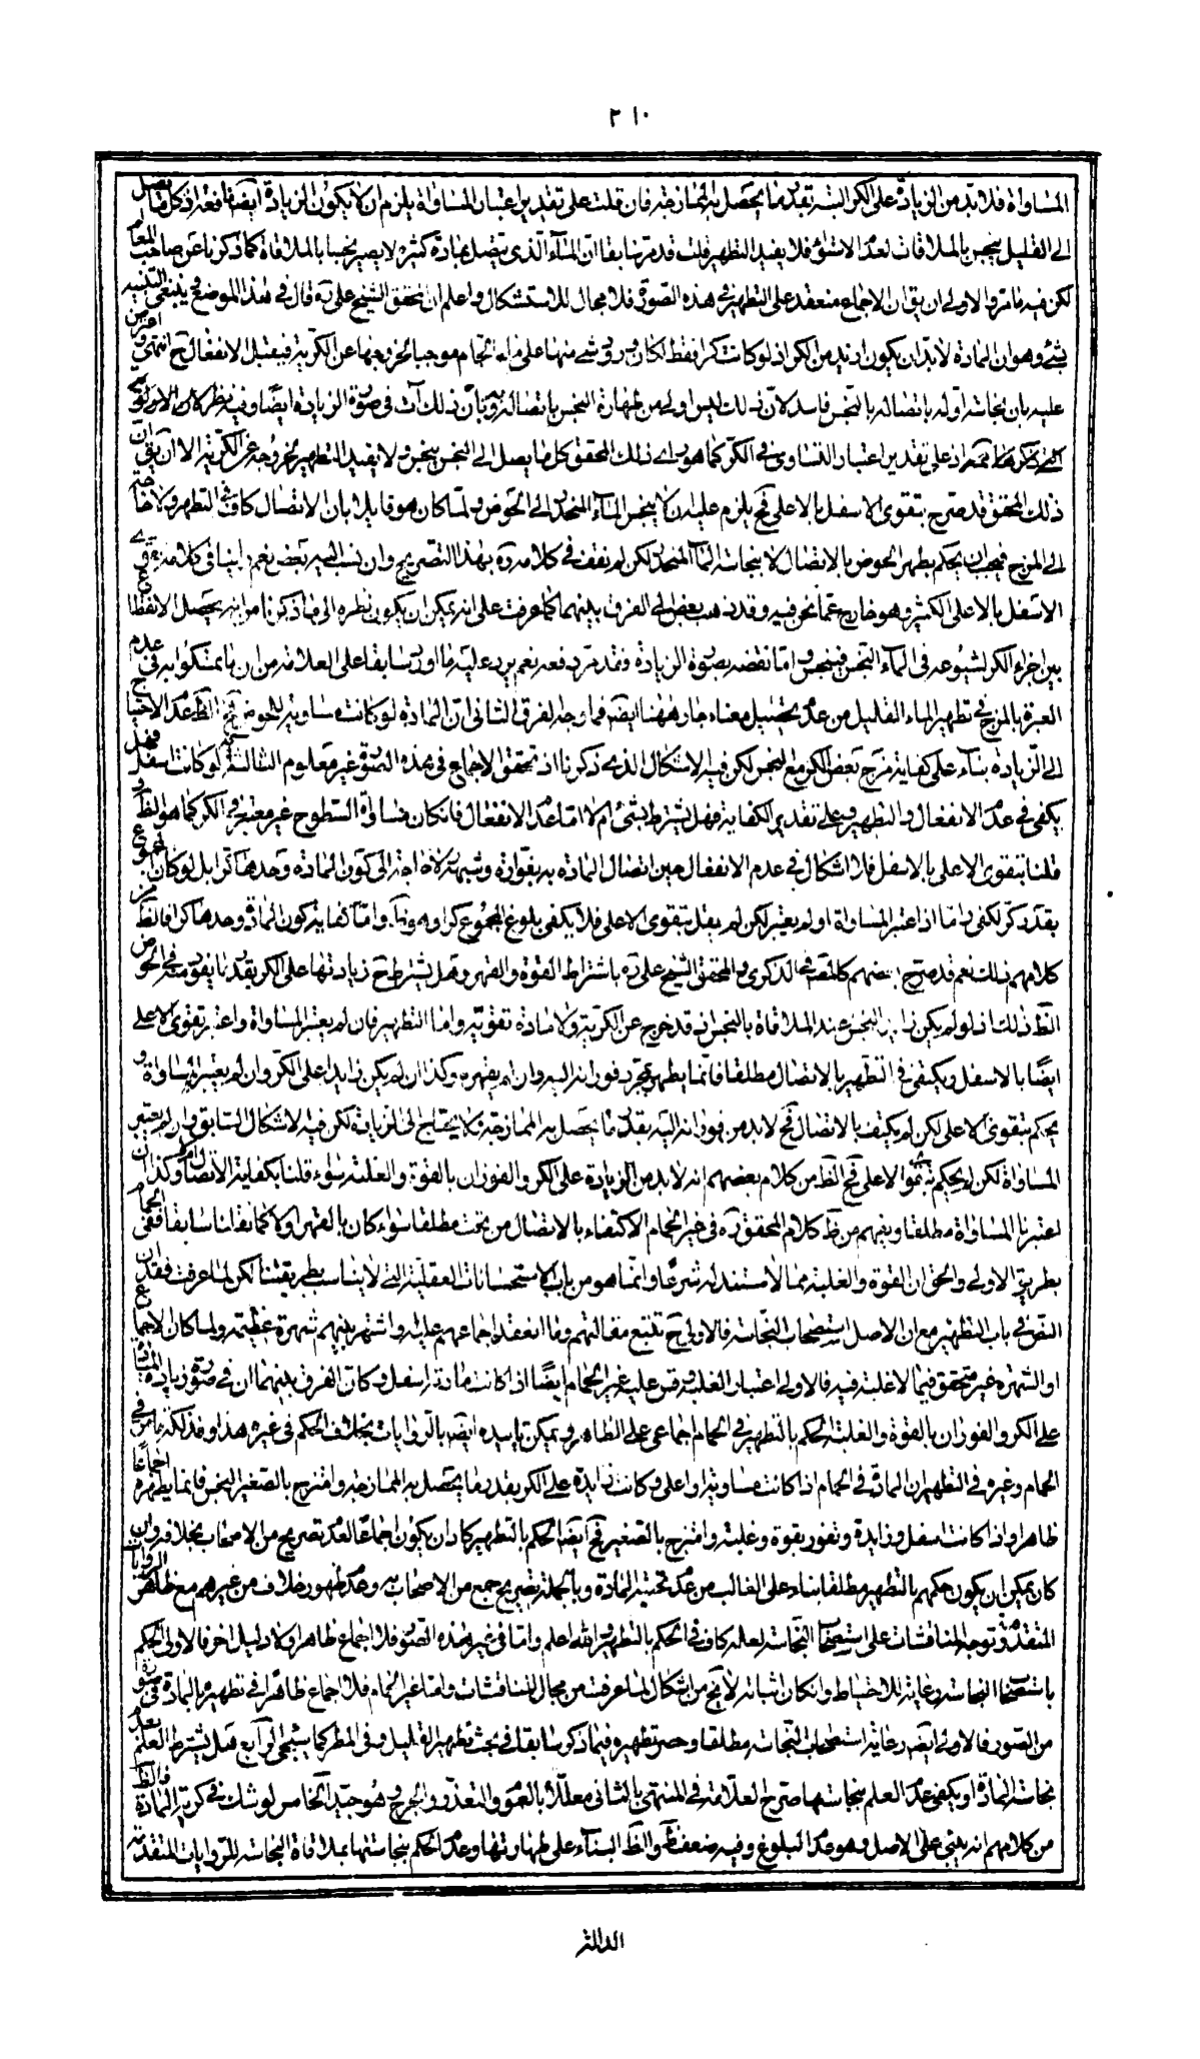 ٢١٠
المساواة فلا بد من الزيادة على الكر البتة بقدر ما يحصل به الممازجة فان قلت على تقدير اعتبار المساواة يلزم ان لا يكون الزيادة ايضا نافعة اذ كل ما يصل
الى القليل ينجس بالملاقات لعدم الاستواء فلا يفيد التطهير قلت قد مر سابقا ان الماء الذي يتصل بمادة كثيرة لا يصير نجسا بالملاقاة كما ذكرنا عن صاحب المعالم
لكن فيه ما مر والاولى ان يق ان الاجماع منعقد على التطهير في هذه الصورة فلا مجال للاستشكال واعلم ان المحقق الشيخ علي ره قال في هذا الموضع ينبغي التنبيه
بشئ وهو ان المادة لا بد ان يكون ازيد من الكر اذ لو كانت كرا فقط لكان ورود شئ منها على ماء الحمام موجبا لخروجها عن الكرية فيقبل الانفعال ح انتهى واعترض
عليه بان نجاسته اوله باتصاله بالنجس فاسد لان ذلك ليس اولى من طهارة النجس باتصاله به وبان ذلك آت في صورة الزيادة ايضا وفيه نظر
على تقدير اعتبار التساوي في الكر كما هو راى ذلك المحقق كل ما يصل الى النجس ينجس ولا يفيد التطهير لخروجه عن الكرية الا ان يق ان
ذلك المحقق قد صرح بتقوى الاسفل بالاعلى فح يلزم عليه ان لا ينجس الماء المنحدر الى الحوض ولما كان هو قايلا بان الاتصال كاف في التطهير ولا حاجة
الى المزج فيجب ان يحكم بطهر الحوض بالاتصال لا بنجاسة الماء المنحدر لكن لم نقف في كلامه ره بهذا التصريح وان نسب اليه بعض نعم
الاسفل بالاعلى الكثير وهو خارج عما نحن فيه وقد نسب بعض الى الفرق بينهما كما عرفت على انه يمكن ان يكون نظره الى ما ذكرنا من انه يحصل الانقطاع
بين اجزاء الكر لشيوعه في الماء النجس فينجس واما نقضه بصورة الزيادة فقد مر دفعه نعم يرد عليه ما اورد سابقا على العلامة من ان ما تمسكوا به في عدم
العبرة بالمزج في تطهير الماء القليل من عدم تحصيل معناه جار ههنا ايضه فما وجه الفرق الثاني ان المادة لو كانت مساوية للحوض فح الظ عدم الاحتياج
الى الزيادة بناء على كفاية مزج بعض الكر مع النجس لكن فيه الاشكال الذي ذكرنا اذ تحقق الاجماع في هذه الصورة غير معلوم الثالث لو كانت اسفل فهل
يكفي في عدم الانفعال والتطهير وعلى تقدير الكفاية فهل يشترط بشئ ام لا اما عدم الانفعال فان كان مساواة السطوح غير معتبر في الكر كما هو الظ و
قلنا بتقوى الاعلى بالاسفل فلا اشكال في عدم الانفعال حين اتصال المادة به بفوارة وشبهها ولا حاجة الى كون المادة وحدها كرا بل لو كان المجموع
بقدر كر لكفى واما اذا اعتبر المساواة او لم يعتبر لكن لم يقل بتقوى الاعلى فلا يكفي بلوغ المجموع كرا وهو ظ واما كفاية كون المادة وحدها كرا فالظ من
كلامهم ذلك نعم قد صرح بعضهم كالشهيد في الذكرى والمحقق الشيخ علي ره باشتراط القوة والقهر وهل يشترط ح زيادتها على الكر بقدر ما يفور منه في الحوض
الظ ذلك اذ لو لم يكن زايدا لنجس عند الملاقاة بالنجس اذ قد خرج عن الكرية ولا مادة تقويه واما التطهير فان لم يعتبر المساواة واعتبر تقوى الاعلى
ايضا بالاسفل ويكتفى في التطهير بالاتصال مطلقا فانما يطهر بمجرد فورانه اليه وان لم يقهره وكذا ان لم يكن زايدا على الكر وان لم يعتبر المساواة و
يحكم بتقوى الاعلى لكن لم يكتف بالاتصال فح لا بد من فورانه اليه بقدر ما يحصل به الممازجة ولا يحتاج الى الزيادة لكن فيه الاشكال السابق وان لم يعتبر
المساواة لكن لم يحكم بتقوى الاعلى فح الظ من كلام بعضهم انه لا بد من الزيادة على الكر والفوران بالقوة والغلبة سواء قلنا بكفاية الاتصال او لا وكذا ان
اعتبرنا المساواة مطلقا ويفهم من ظ كلام المحقق ره في خبر الحمام الاكتفاء بالاتصال من تحت مطلقا سواء كان بالقهر او لا كما نقلنا سابقا ففي الحمام
بطريق الاولى والحق ان القوة والغلبة مما لا مستند له شرعا وانما هو من باب الاستحسانات العقلية التي لا يناسب طريقتنا لكن لما عرفت فقدان
النص في باب التطهير مع ان الاصل استصحاب النجاسة فالاولى ح تتبع مقالتهم وما انعقد اجماعهم عليه واشتهر بينهم شهرة عظيمة ولما كان الاجماع
او الشهرة غير متحقق فيما لا غلبة فيه فالاولى اعتبار الغلبة وقس عليه غير الحمام ايضا اذا كانت مادته اسفل وكان الفرق بينهما ان في صورة زيادة المادة
على الكر والفوران بالقوة والغلبة الحكم بالتطهير في الحمام اجماعي على الظاهر ويمكن تاييده ايضه بالروايات بخلاف الحكم في غيره هذا وفذلكة ما مر في
الحمام وغيره في التطهير ان المادة في الحمام اذا كانت مساوية او اعلى وكانت زايدة على الكر بقدر ما يحصل به الممازجة وامتزج بالصغير النجس فانما يطهره اجماعا
ظاهرا واذا كانت اسفل وزايدة وتفور بقوة وغلبة وامتزج بالصغير فح ايضه الحكم بالتطهير كاد ان يكون اجماعا لعدم تصريح من الاصحاب بخلافه وان
كان يمكن ان يكون حكمهم بالتطهير مطلقا بناء على الغالب من عدم تحتية المادة وبالجملة تصريح جمع من الاصحاب به وعدم ظهور خلاف من غيرهم مع ظاهر الروايات
المتقدمة وتوجه المناقشات على استصحاب النجاسة لعله كاف في الحكم بالتطهير والله اعلم واما في غير هذه الصور فلا اجماع ظاهرا ولا دليل اخر فالاولى الحكم
باستصحاب النجاسة رعاية للاحتياط وان كان اثباته لا يخ من اشكال لما عرفت من مجال المناقشات واما غير الحمام فلا اجماع ظاهرا في تطهيره بالمادة في صورة
من الصور فالاولى ايضه رعاية استصحاب النجاسة مطلقا وحصر تطهيره فيما ذكر سابقا في بحث تطهير القليل وفي المطر كما سيجئ الرابع هل يشترط العلم بعدم
نجاسة المادة او يكفي عدم العلم بنجاستها صرح العلامة في المنتهى بالثاني معللا بالعموم والتعذر والحرج وهو جيد الخامس لو شك في كرية المادة فالظ
من كلامهم انه يبنى على الاصل وهو عدم البلوغ وفيه ضعف ظ والظ البناء على طهارتها وعدم الحكم بنجاستها بملاقاة النجاسة للروايات المتقدمة
الدالة